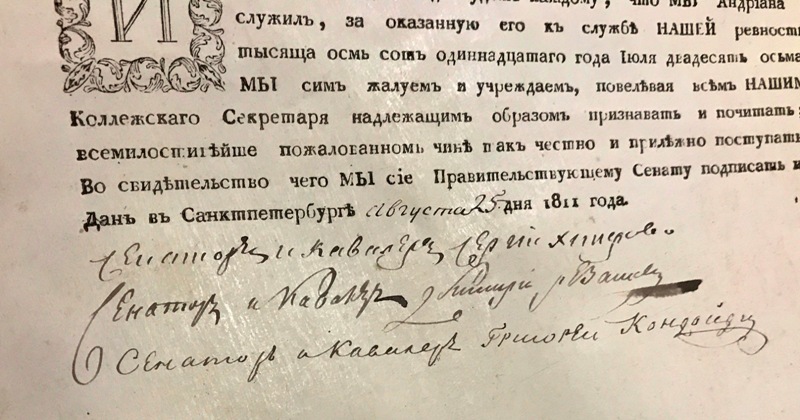 И
каждому, что МЫ Андріана
служил, за оказанную его къ службѣ НАШЕЙ ревность
тысяща осмь сотъ одиннадцатаго года Іюля двадесять осьма
МЫ симъ жалуемъ и учреждаемъ, повелѣвая всѣмъ НАШИМ
Коллежскаго Секретаря надлежащимъ образомъ признавать и почитать:
всемилостивѣйше пожалованномъ чинѣ такъ честно и прилѣжно поступать
Во свидѣтельство чего МЫ сіе Правительствующему Сенату подписать и
Данъ въ Санктпетербургѣ Августа 25 дня 1811 года.
Сенаторъ и Кавалеръ Сергій
Сенаторъ и Кавалеръ
Сенаторъ и Кавалеръ Григорій Кондоиди